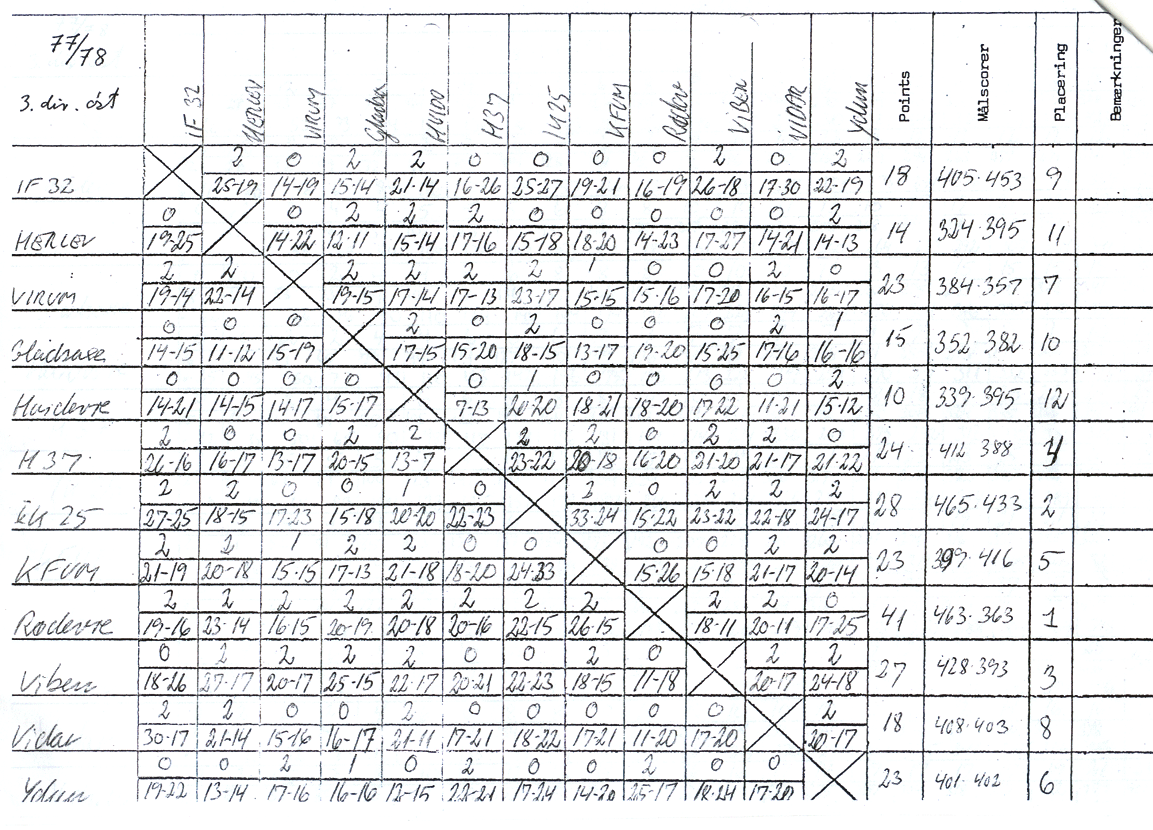 77/78
3. div. øst
IF 32 HERLEV VIRUM Gladsa HVIDO H37 IK25 KFUM Rødov VIBEN VIDAR Ydun Points Målscorer Placering Bemærkninger
2 0 2 2 0 0 0 0 2 0 2
IF 32 25-19 14-19 15-14 21-14 16-26 25-27 19-21 16-19 26-18 17-30 22-19 18 405-453 9
0 0 2 2 2 0 0 0 0 0 2
HERLEV 19-25 14-22 12-11 15-14 17-16 15-18 18-20 14-23 17-27 14-21 14-13 14 324-395 11
2 2 2 2 2 2 1 0 0 2 0
VIRUM 19-14 22-14 19-15 17-14 17-13 23-17 15-15 15-16 17-20 16-15 16-17 23 384-357 7
0 0 0 2 0 2 0 0 0 2 1
Gladsaxe 14-15 11-12 15-19 17-15 15-20 18-15 13-17 19-20 15-25 17-16 16-16 15 352-382 10
0 0 0 0 0 1 0 0 0 0 2
Hvidovre 14-21 14-15 14-17 15-17 7-13 20-20 18-21 18-20 17-22 11-21 15-12 10 339-395 12
2 0 0 2 2 2 2 0 2 2 0
H 37 26-16 16-17 13-17 20-15 13-7 23-22 20-18 16-20 21-20 21-17 21-22 24 412 388 4
2 2 0 0 1 0 2 0 2 2 2
IK 25 27-25 18-15 17-23 15-18 20-20 22-23 33-24 15-22 23-22 22-18 24-17 28 465-433 2
2 2 1 2 2 0 0 0 0 2 2
KFUM 21-19 20-18 15-15 17-13 21-18 18-20 24-33 15-26 15-18 21-17 20-14 23 399-416 5
2 2 2 2 2 2 2 2 2 2 0
Rødovre 19-16 23-14 16-15 20-19 20-18 20-16 22-15 26-15 18-11 20-11 17-25 41 463-363 1
0 2 2 2 2 0 0 2 0 2 2
Viben 18-26 27-17 20-17 25-15 22-17 20-21 22-23 18-15 11-18 20-17 24-18 27 428-393 3
2 2 0 0 2 0 0 0 0 0 2
Vidar 30-17 21-14 15-16 16-17 21-11 17-21 18-22 17-21 11-20 17-20 20-17 18 408-403 8
0 0 2 1 0 2 0 0 2 0 0
Ydun 19-22 13-14 17-16 16-16 12-15 22-21 17-24 14-20 25-17 18-24 17-20 23 401-402 6